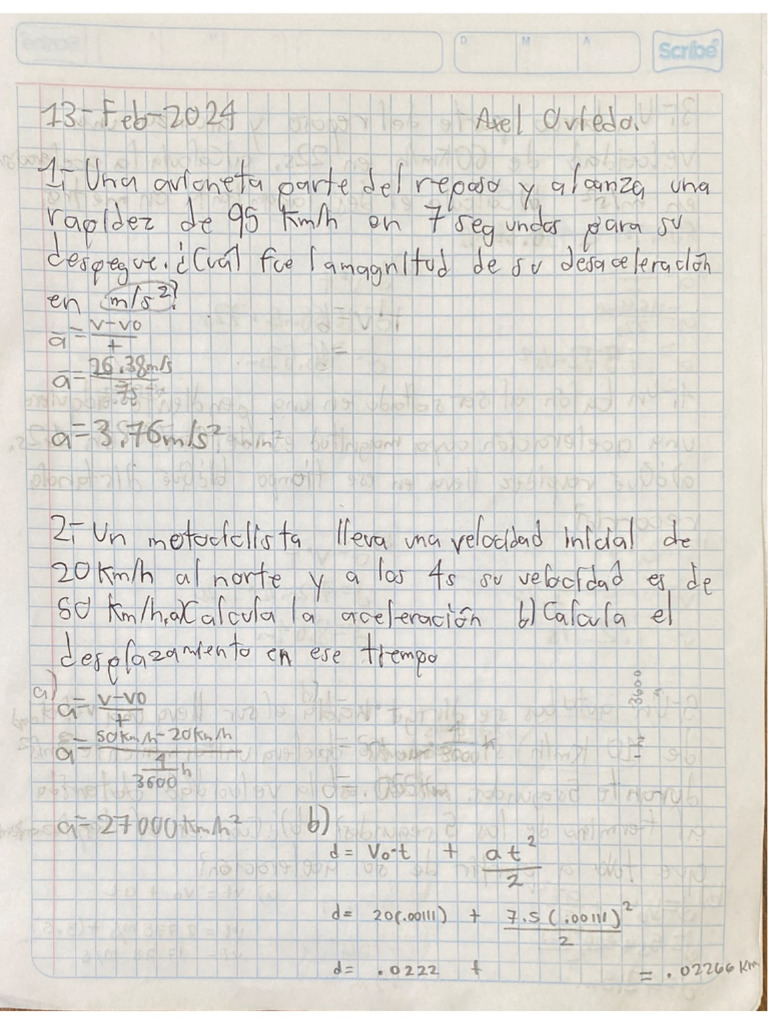 D M A Scribe
13-Feb-2024 Axel Oviedo.
1.- Una avioneta parte del reposo y alcanza una
rapidez de 95 Km/h en 7 segundos para su
despegue. ¿Cuál fue la magnitud de su desaceleración
en m/s²?
a = v-vo / t
a = 26.38m/s / 7s
a = 3.76m/s²
2.- Un motociclista lleva una velocidad inicial de
20 Km/h al norte y a los 4s su velocidad es de
50 Km/h, a) Calcula la aceleración b) Calcula el
desplazamiento en ese tiempo
a) a = v-vo / t
a = 50km/h - 20km/h / 4/3600 h
a = 27000 km/h² b)
d = Vo·t + at² / 2
d = 20(.00111) + 7.5(.00111)² / 2
d = .0222 + = .02266 Km